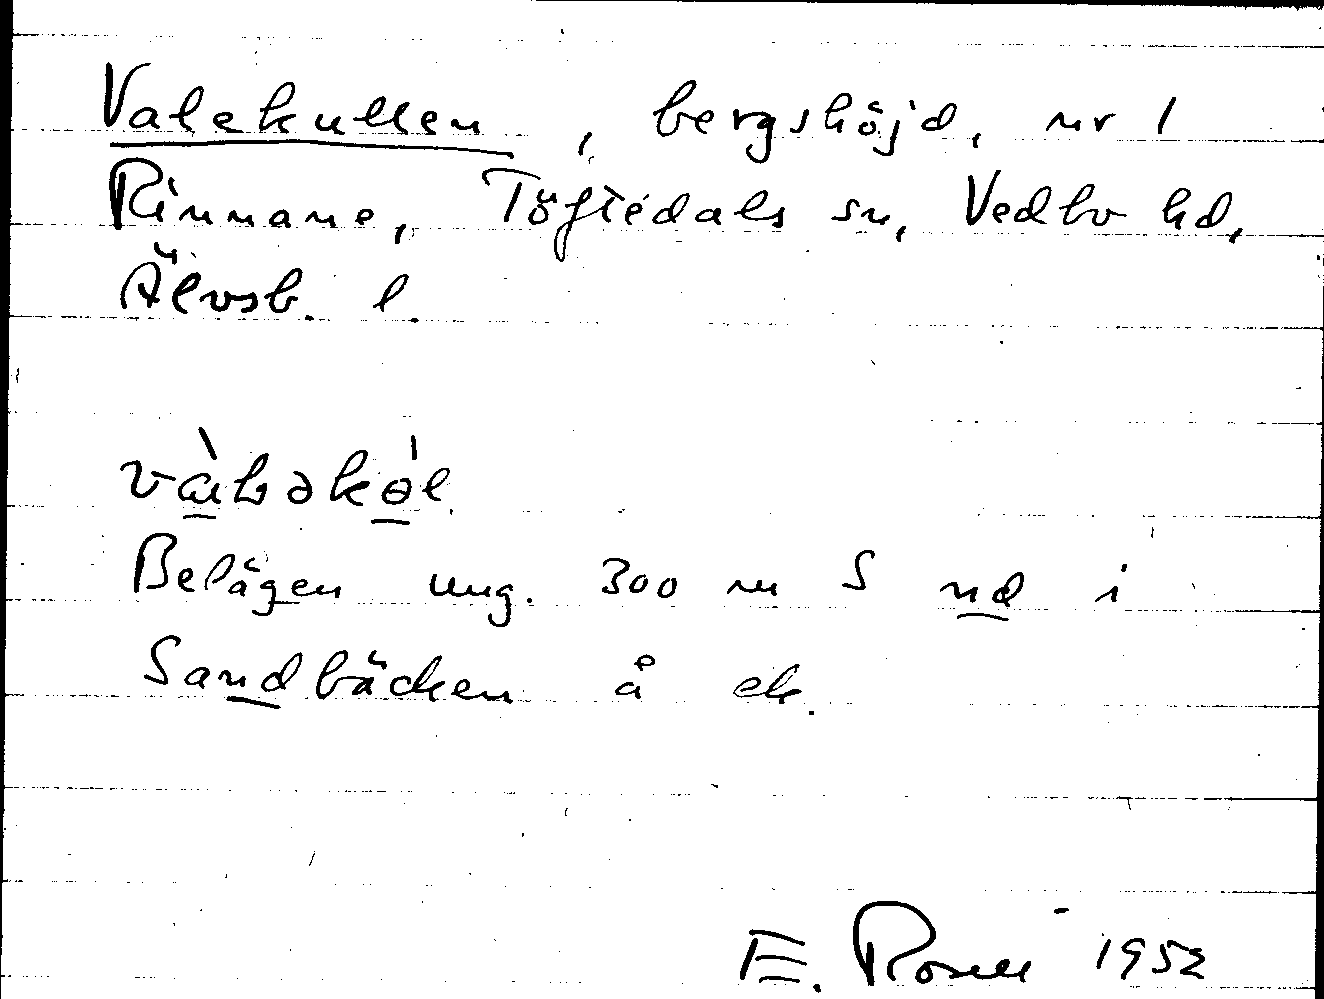 Valekullen, bergshöjd, nr 1
Rinnane, Töftedals sn, Vedbo hd,
Älvsb. l.
Belägen ung. 300 m S nd i
Sandbäcken å ek.
E. Rosell 1952